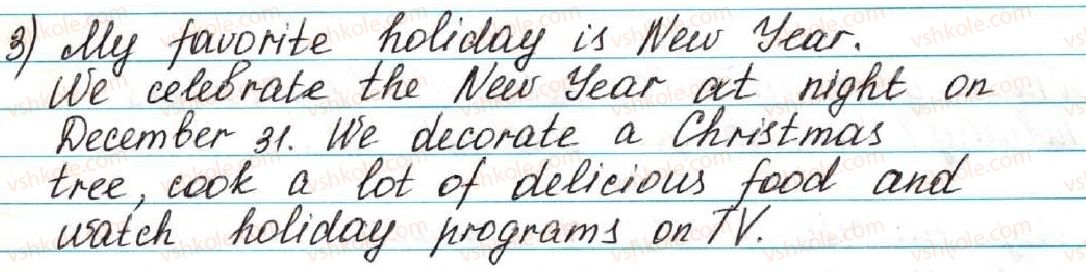 3) My favorite holiday is New Year.
We celebrate the New Year at night on
December 31. We decorate a Christmas
tree, cook a lot of delicious food and
watch holiday programs on TV.